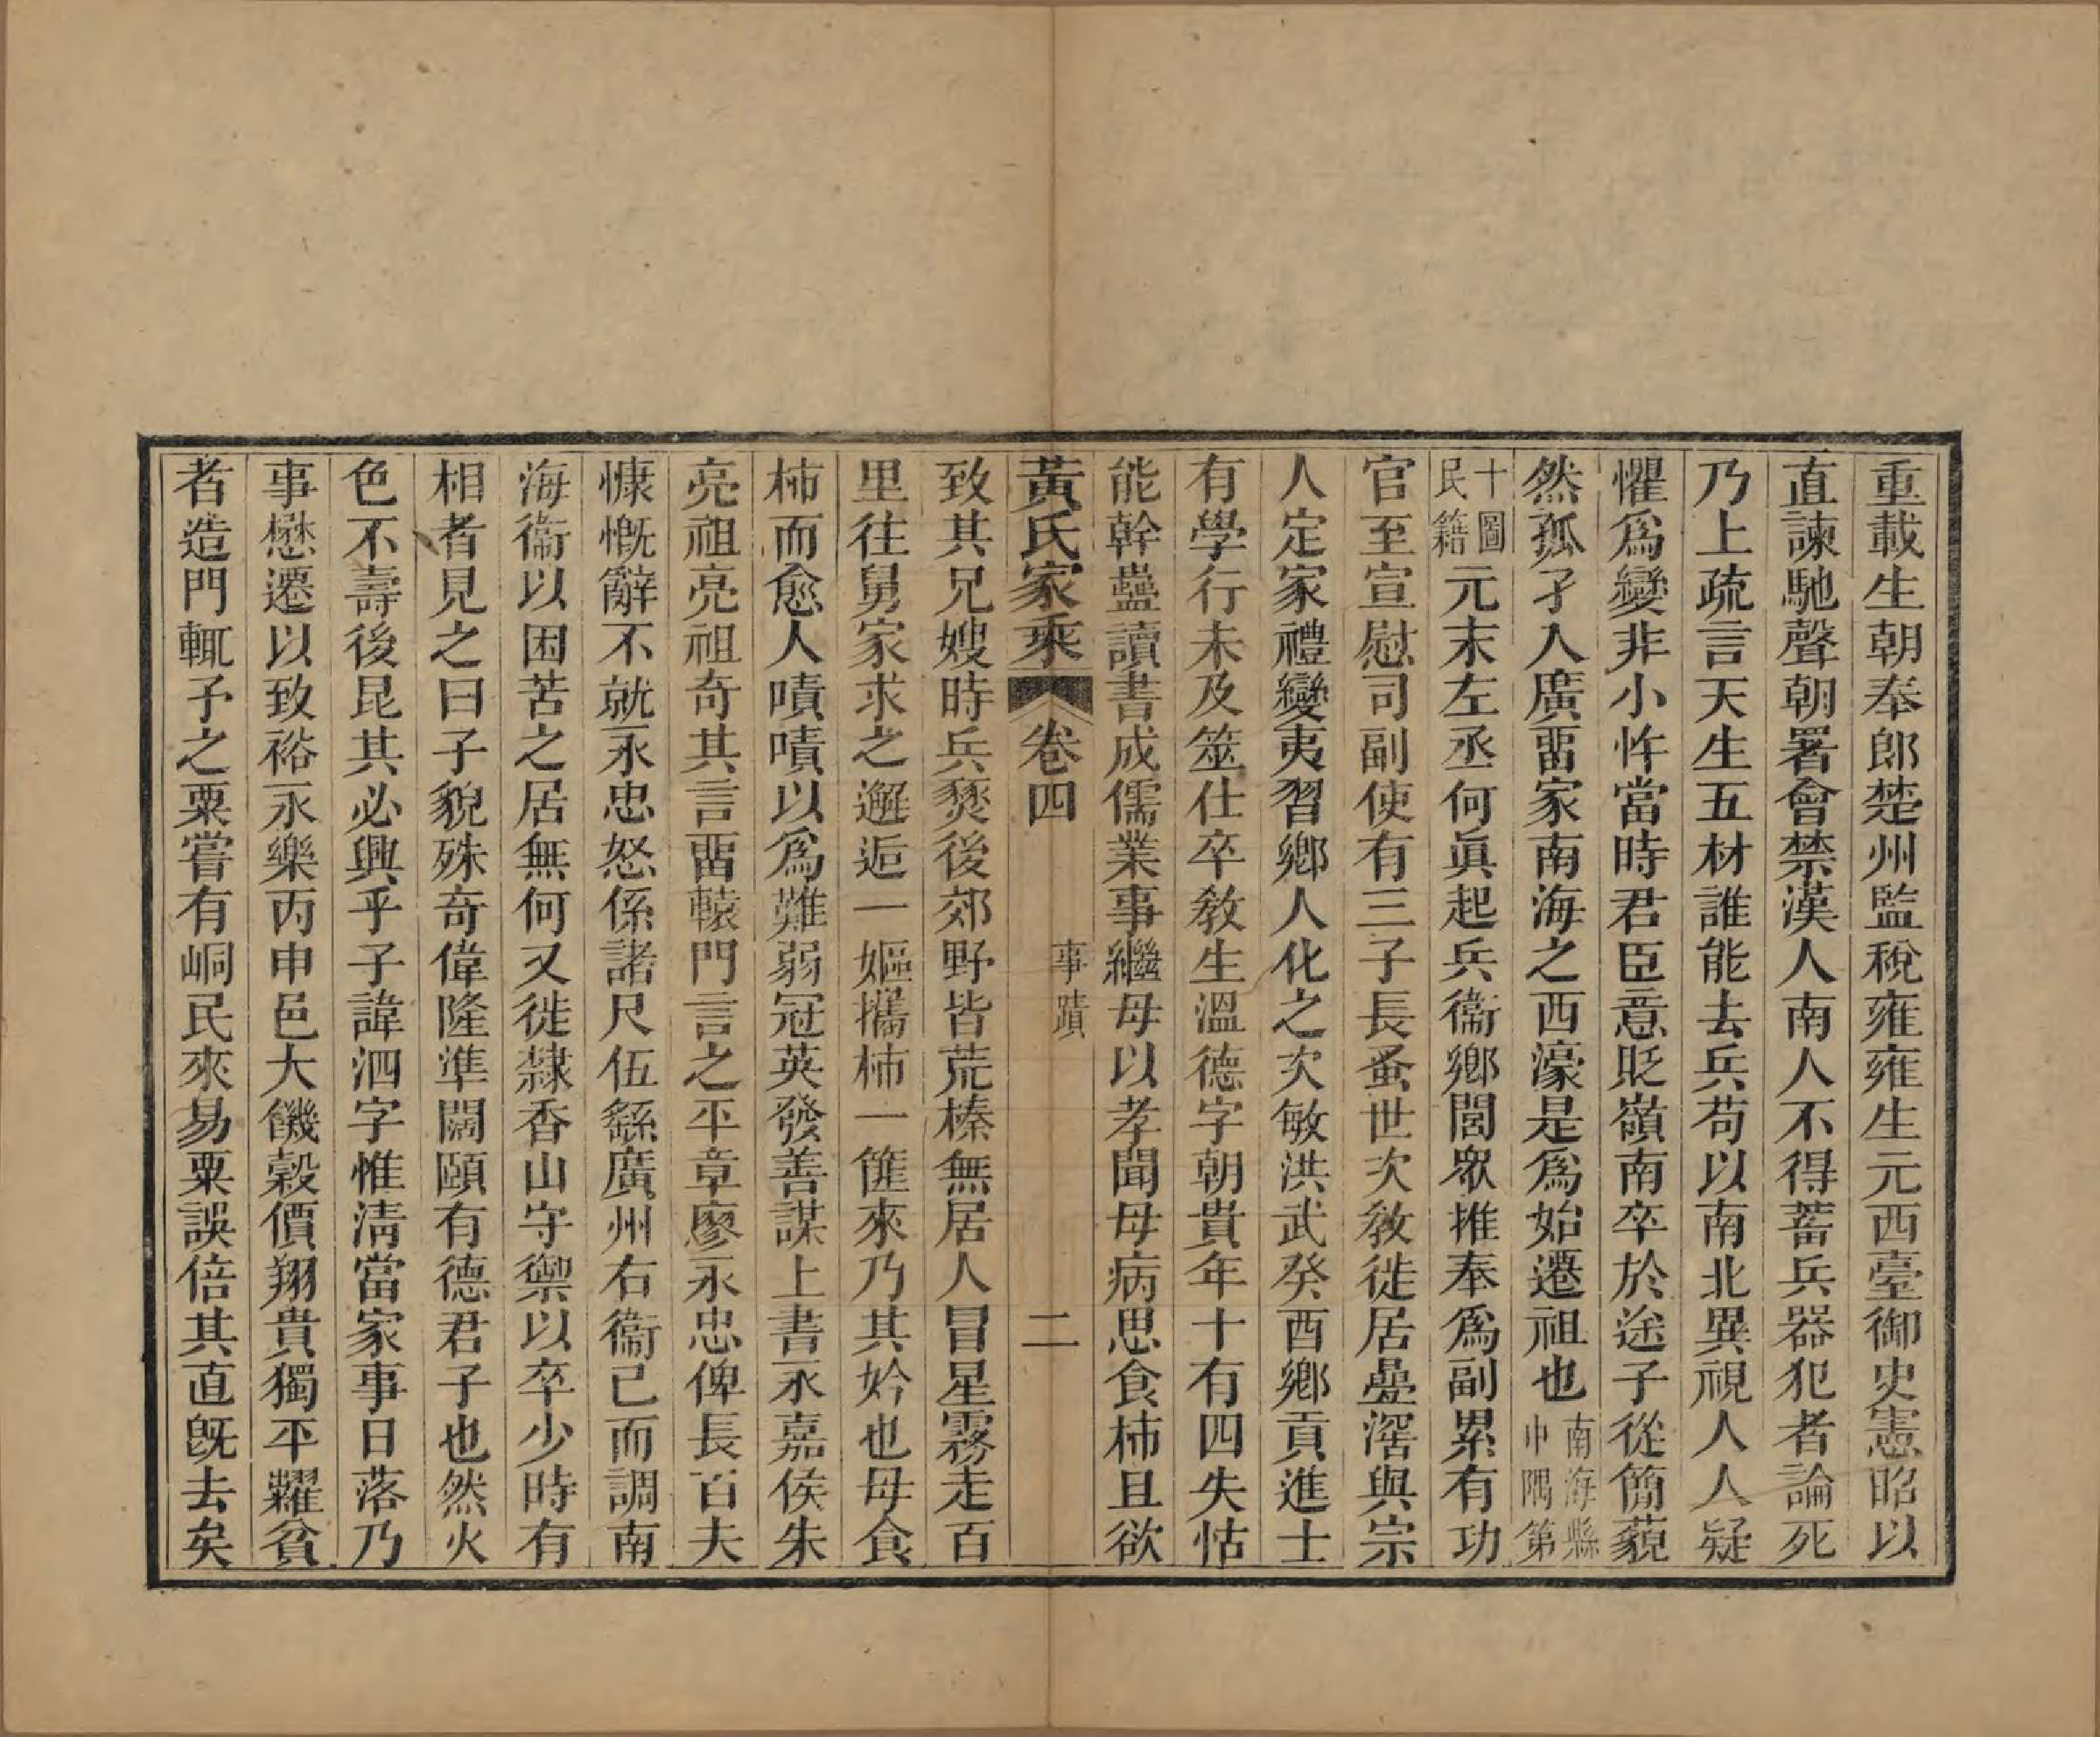 重載生朝奉郎楚州監稅雍雍生元西臺御史憲昭以
直諫馳聲朝署會禁漢人南人不得蓄兵器犯者論死
乃上疏言天生五材誰能去兵苟以南北異視人人疑
懼爲變非小忤當時君臣意貶嶺南卒於途子從簡藐
然孤孑入廣畱家南海之西濠是爲始遷祖也南海縣中隅第
十圖民籍元末左丞何眞起兵衞鄉閭眾推奉爲副累有功
官至宣慰司副使有三子長蚤世次敎徙居疊滘與宗
人定家禮變夷習鄉人化之次敏洪武癸酉鄉貢進士
有學行未及筮仕卒敎生溫德字朝貴年十有四失怙
能幹蠱讀書成儒業事繼母以孝聞母病思食柿且欲
黃氏家乘 卷四 事蹟 二
致其兄嫂時兵燹後郊野皆荒榛無居人冒星霧走百
里往舅家求之邂逅一嫗攜柿一篚來乃其妗也母食
柿而愈人嘖嘖以爲難弱冠英發善謀上書永嘉侯朱
亮祖亮祖奇其言畱轅門言之平章廖永忠俾長百夫
慷慨辭不就永忠怒係諸尺伍繇廣州右衞已而調南
海衞以困苦之居無何又徙隸香山守禦以卒少時有
相者見之曰子貌殊奇偉隆準闊頤有德君子也然火
色不壽後昆其必興乎子諱泗字惟清當家事日落乃
事懋遷以致裕永樂丙申邑大饑穀價翔貴獨平糶貧
者造門輒予之粟嘗有峒民來易粟誤倍其直旣去矣